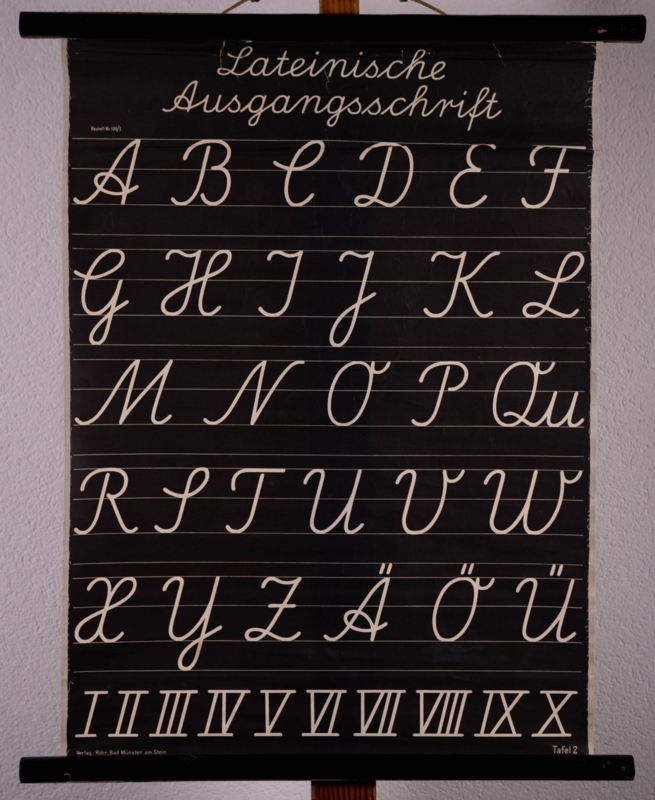 Lateinische
Ausgangsschrift
Bestell-Nr. 109/2
A B C D E F
G H I J K L
M N O P Qu
R S T U V W
X Y Z Ä Ö Ü
I II III IV V VI VII VIII IX X
Verlag: Röhr, Bad Münster am Stein
Tafel 2